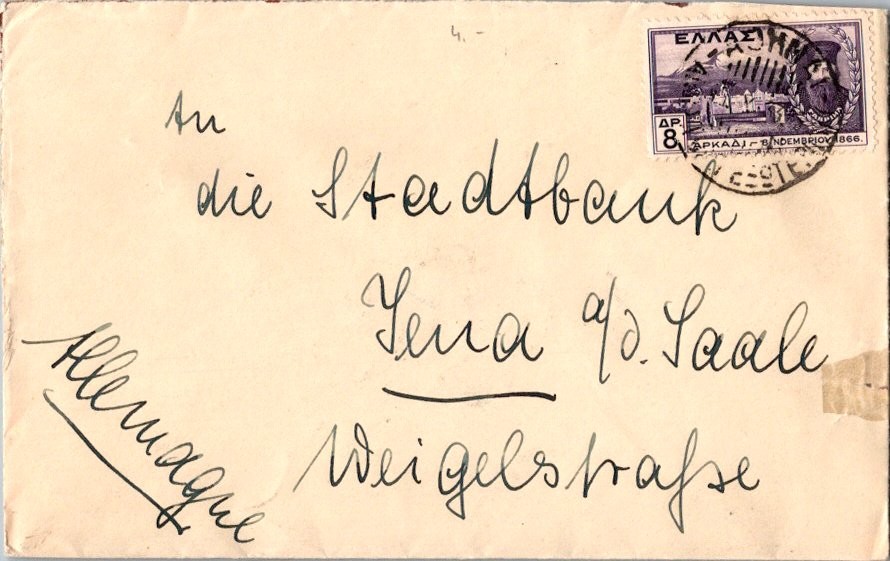 4.-
ΕΛΛΑΣ
ΔΡ.
8
ΑΡΚΑΔΙ - 8 ΝΟΕΜΒΡΙΟΥ 1866.
An
die Stadtbank
Jena a/d. Saale
Weigelstraße
Allemagne